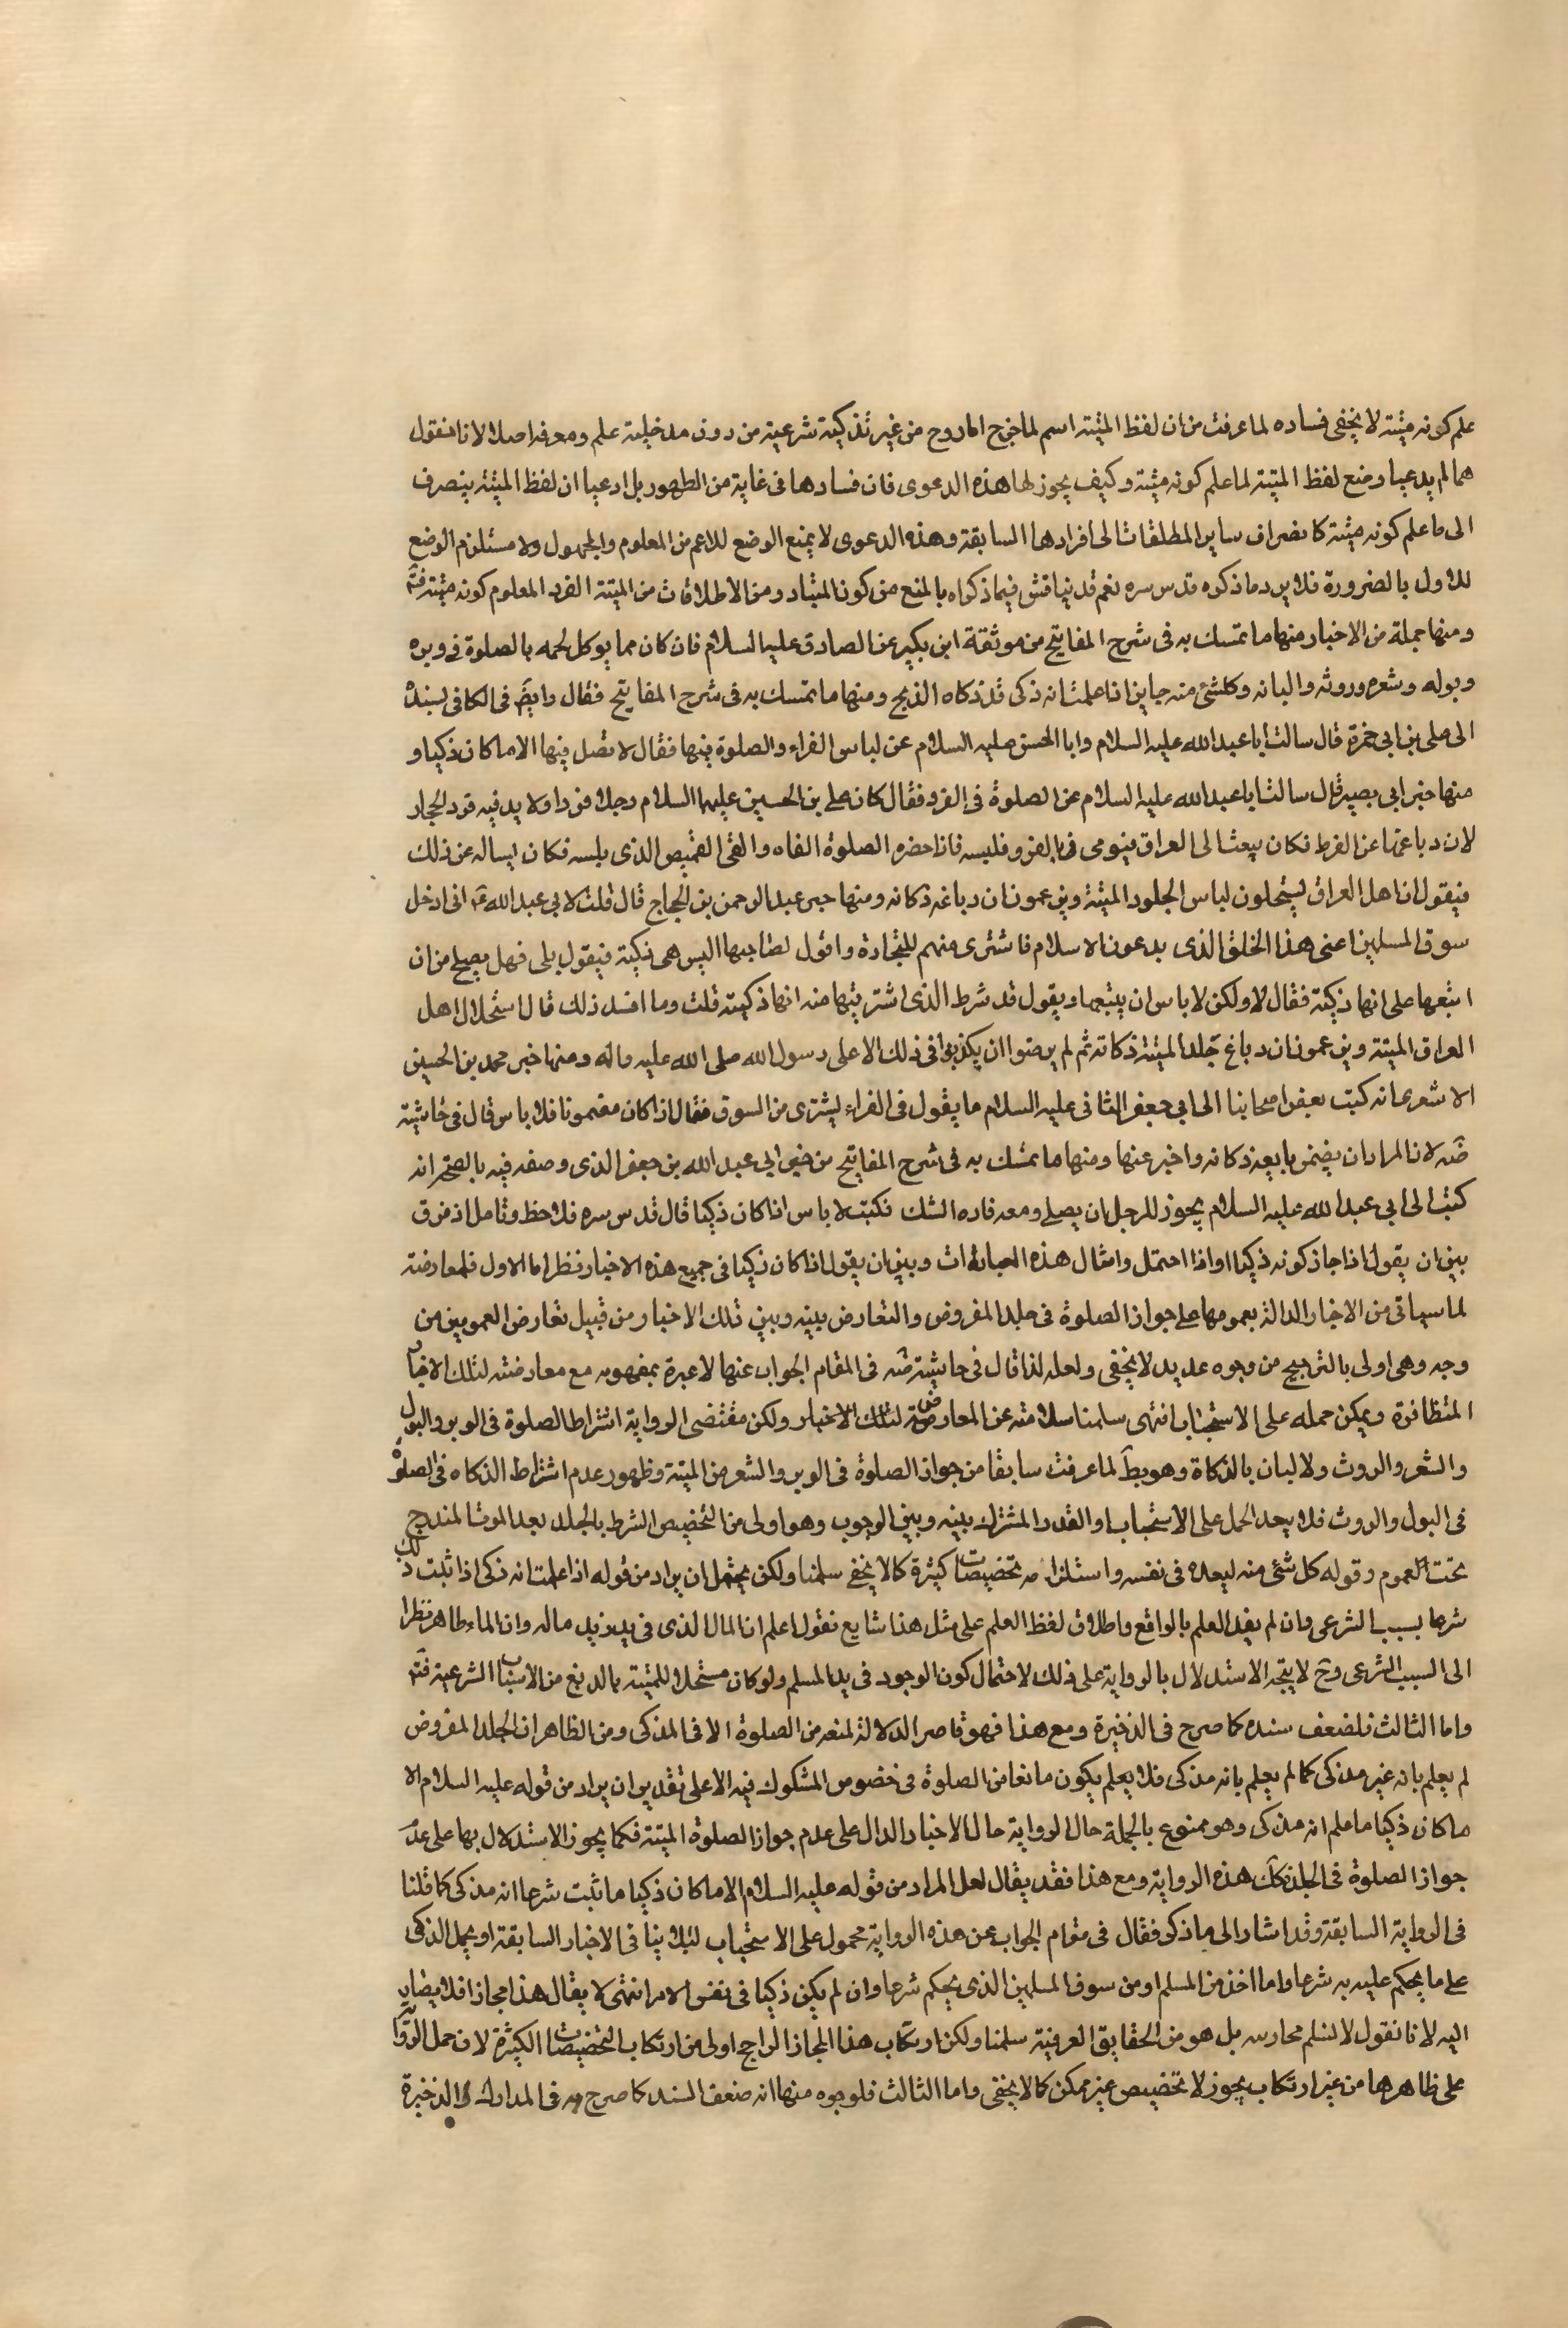 علم كونه ميتة لا يخفى فساده لما عرفت من ان لفظ الميتة اسم لما خرج الروح من غير تذكية شرعية من دون مدخلية علم ومعرفة اصلا لانا نقول
هما لم يدعيا وضع لفظ الميتة لما علم كونه ميتة وكيف يجوز لها هذه الدعوى فان فسادها فى غاية من الظهور بل ادعيا ان لفظ الميتة ينصرف
الى ما علم كونه ميتة كانصراف ساير المطلقات الى افرادها السابقة وهذه الدعوى لا يمنع الوضع للاعم من المعلوم والمجهول ولا مستلزم الوضع
للاول بالضرورة فلا يرد ما ذكره قدس سره نعم قد يناقش فيما ذكراه بالمنع من كون المتبادر من الاطلاقات من الميتة الفرد المعلوم كونه ميتة فتم
ومنها جملة من الاخبار منها ما تمسك به فى شرح المفاتيح من موثقة ابن بكير عن الصادق عليه السلام فان كان مما يوكل لحمه بالصلوة فى وبره
وبوله وشعره وروثه والبانه وكلشئ منه جايز اذا علمت انه ذكى قد ذكاه الذبح ومنها ما تمسك به فى شرح المفاتيح فقال وايضَ فى الكافى بسنده
الى على بن ابى حمزة قال سالت ابا عبد الله عليه السلام وابا الحسن عليه السلام عن لباس الفراء والصلوة فيها فقال لا تصل فيها الا ما كان ذكيا و
منها خبر ابى بصير قال سالت ابا عبد الله عليه السلام عن الصلوة فى الفرو فقال كان على بن الحسين عليهما السلام رجلا صردا ولا يدفيه فرو الحجاز
لان دباغتها عن القرط فكان يبعث الى العراق فيوتى فى الفرو فلبسه فاذا حضره الصلوة القاه والقى القميص الذى يلبسه فكان يساله عن ذلك
فيقول ان اهل العراق يستحلون لباس الجلود الميتة ويزعمون ان دباغه ذكاته ومنها خبر عبد الرحمن بن الحجاج قال قلت لابى عبد الله عَ انى ادخل
سوق المسلمين اعنى هذا الخلق الذى يدعون الاسلام فاشترى منهم للتجارة واقول لصاحبها اليس هى ذكية فيقول بلى فهل يصلح من ان
ابيعها على انها ذكية فقال لا ولكن لا باس ان يبيعها ويقول قد شرط الذى اشتريتها منه انها ذكية قلت وما افسد ذلك قال استحلال اهل
العراق الميتة ويزعمون ان دباغ جلد الميتة ذكاته ثم لم يرضوا ان يكذبوا فى ذلك الا على رسول الله صلى الله عليه واله ومنها خبر محمد بن الحسين
الاشعرى انه كتب بعض اصحابنا الى ابى جعفر الثانى عليه السلام ما يقول فى الفراء يشترى من السوق فقال اذا كان مضمونا فلا باس قال فى حاشيته
ضَه لان المراد ان يضمن بايعه ذكاته واخبر عنها ومنها ما تمسك به فى شرح المفاتيح من خبر ابى عبد الله بن جعفر الذى وصفه فيه بالصحة انه
كتبت الى ابى عبد الله عليه السلام يجوز للرجل ان يصلى ومعه فاره المسك فكتب لا باس اذا كان ذكيا قال قدس سره فلاحظ وتامل اذ فرق
بين ان يقول اذا جاز كونه ذكيا او اذا احتمل وامثال هذه العبارات وبين ان يقول اذا كان ذكيا فى جميع هذه الاخبار نظر اما الاول فلمعارضته
لما سياتى من الاخبار الدالة بعمومها على جواز الصلوة فى جلد المفروض والتعارض بينه وبين تلك الاخبار من قبيل تعارض العمومين من
وجه وهى اولى بالترجيح من وجوه عديده لا يخفى ولعله لذا قال فى حاشيته ضَه فى المقام الجواب عنها لا عبرة بمفهومه مع معارضته لتلك الاخبار
المتظافرة ويمكن حمله على الاستحباب انتهى سلمنا سلامته عن المعارضة لتلك الاخبار ولكن مقتضى الرواية اشتراط الصلوة فى الوبر والبول
والشعر والروث ولالبان بالذكاة وهو بطَ لما عرفت سابقا من جواز الصلوة فى الوبر والشعر من الميتة وظهور عدم اشتراط الذكاه فى الصلوة
فى البول والروث فلا يبعد الحمل على الاستحباب او القدر المشترك بينه وبين الوجوب وهو اولى من التخصيص الشرط بالجلد بعد الموت المندرج
تحت العموم وقوله كل شئ منه لبعده فى نفسه واستلزامه تخصيصات كثيرة كما لا يخفى سلمنا ولكن يحتمل ان يراد من قوله اذا علمت انه ذكى اذا ثبت ذلك
شرعا بسبب الشرعى وان لم يفد العلم بالواقع واطلاق لفظ العلم على مثل هذا شايع نقول اعلم ان المال الذى فى يد زيد ماله وان الماء طاهر نظرا
الى السبب الشرعى وحَ لا يتجه الاستدلال بالرواية على ذلك لاحتمال كون الوجود فى يد المسلم ولو كان مستحلا للميتة بالدبغ من الاسباب الشرعية فتم
واما الثالث فلضعف سنده كما صرح فى الذخيرة ومع هذا فهو قاصر الدلالة لمنعه من الصلوة الا فى المذكى ومن الظاهر ان الجلد المفروض
لم يعلم بانه غير مذكى كما لم يعلم بانه مذكى فلا يعلم يكون مانعا من الصلوة فى خصوص المشكوك فيه الا على تقدير ان يراد من قوله عليه السلام الا
ما كان ذكيا ما علم انه مذكى وهو ممنوع بالجملة حال الرواية حال الاخبار الدال على عدم جواز الصلوة الميتة فكما يجوز الاستدلال بها على عدم
جواز الصلوة فى الجلد فكك هذه الرواية ومع هذا فقد يقال لعل المراد من قوله عليه السلام الا ما كان ذكيا ما ثبت شرعا انه مذكى كما قلنا
فى الرواية السابقة وقد اشار الى ما ذكر فقال فى مقام الجواب عن هذه الرواية محمول على الاستحباب لئلا ينافى الاخبار السابقة او يحمل الذكى
على ما يحكم عليه به شرعا واما اخذ من المسلم او من سوق المسلمين الذى يحكم شرعا وان لم يكن ذكيا فى نفس الامر انتهى لا يقال هذا مجاز افلا يصار
اليه لانا نقول لا نسلم مجازيته بل هو من الحقايق العرفية سلمنا ولكن ارتكاب هذا المجاز الراجح اولى من ارتكاب التخصيصات الكثيرة لان حمل الرواية
على ظاهرها من غير ارتكاب يجوز لا تخصيص غير ممكن كما لا يخفى واما الثالث فلوجوه منها انه ضعف السند كما صرح به فى المدارك والذخيرة